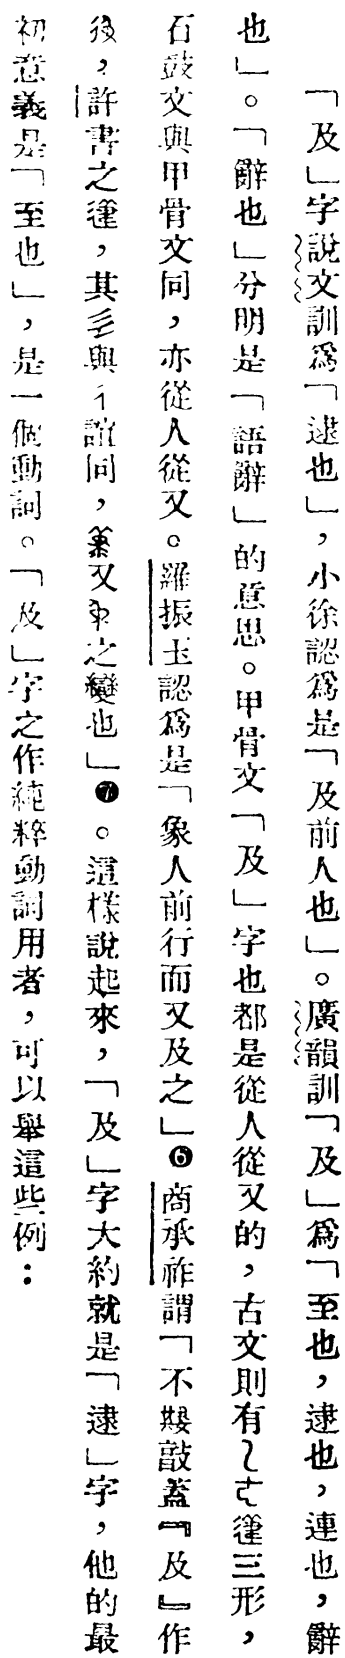 「及」字說文訓爲「逮也」，小徐認爲是「及前人也」。廣韻訓「及」爲「至也，逮也，連也，辭
也」。「辭也」分明是「語辭」的意思。甲骨文「及」字也都是從人從又的，古文則有三形，
石鼓文與甲骨文同，亦從人從又。羅振玉認爲是「象人前行而又及之」❻商承祚謂「不𡢁敦蓋『及』作
後，許書之，其與彳誼同，又之變也」❼。這樣說起來，「及」字大約就是「逮」字，他的最
初意義是「至也」，是一個動詞。「及」字之作純粹動詞用者，可以舉這些例：